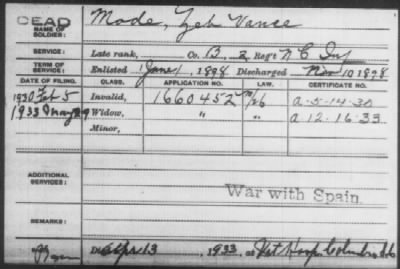 DEAD
NAME OF SOLDIER: Mode, Zeb Vance
SERVICE: Late rank, Co. 13, 2 Reg't N C Inf
Enlisted June 1, 1898 Discharged Nov 10 1898
DATE OF FILING. CLASS. APPLICATION NO. LAW. CERTIFICATE NO.
1930 Feb 5 Invalid, 1660452 A-5-14-30
1933 May 29 Widow, " " A 12.16-33
Minor,
ADDITIONAL SERVICES:
War with Spain.
REMARKS:
Died Apr 13, 1933, at Vet Hosp Columbia S C